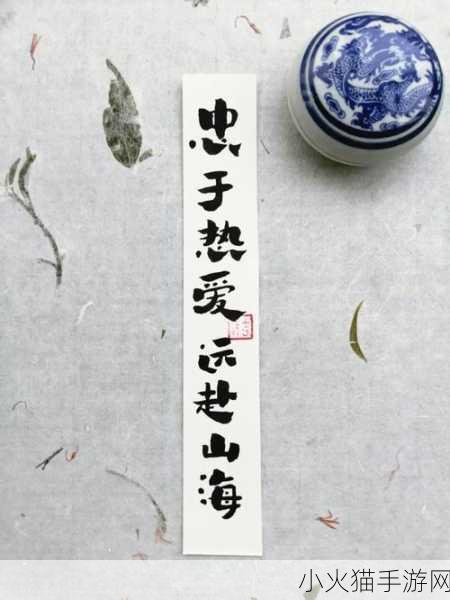 忠于热爱远赴山海
小火猫手游网